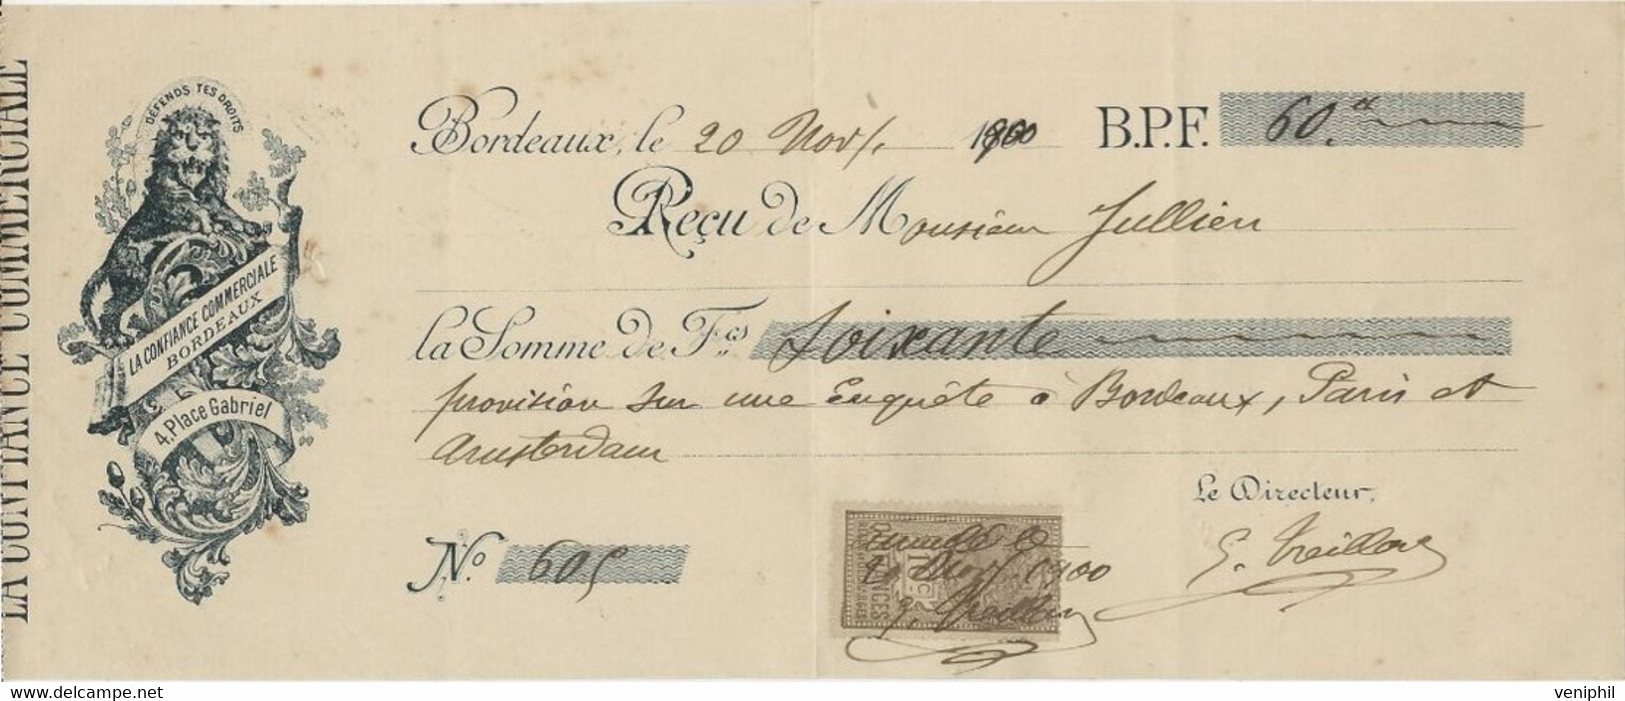 LA CONFIANCE COMMERCIALE
DÉFENDS TES DROITS
LA CONFIANCE COMMERCIALE
BORDEAUX
4, Place Gabriel
Bordeaux, le 20 Nov. 1900 B.P.F. 60.
Reçu de Monsieur Jullien
la Somme de Fcs Soixante
provision sur une Enquête à Bordeaux, Paris et
Amsterdam
Le Directeur,
No. 605
QUITTANCES
10 c
20 Nov 1900
veniphil